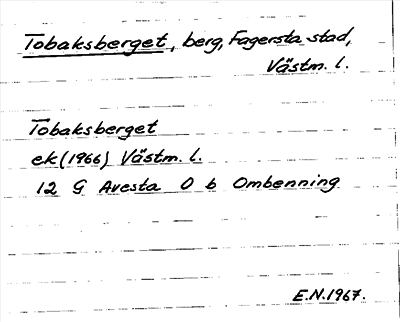 Tobaksberget, berg, Fagersta stad,
Västm. l.
Tobaksberget
ek (1966) Västm. l.
12 G Avesta O b Ombenning
E.N. 1967.